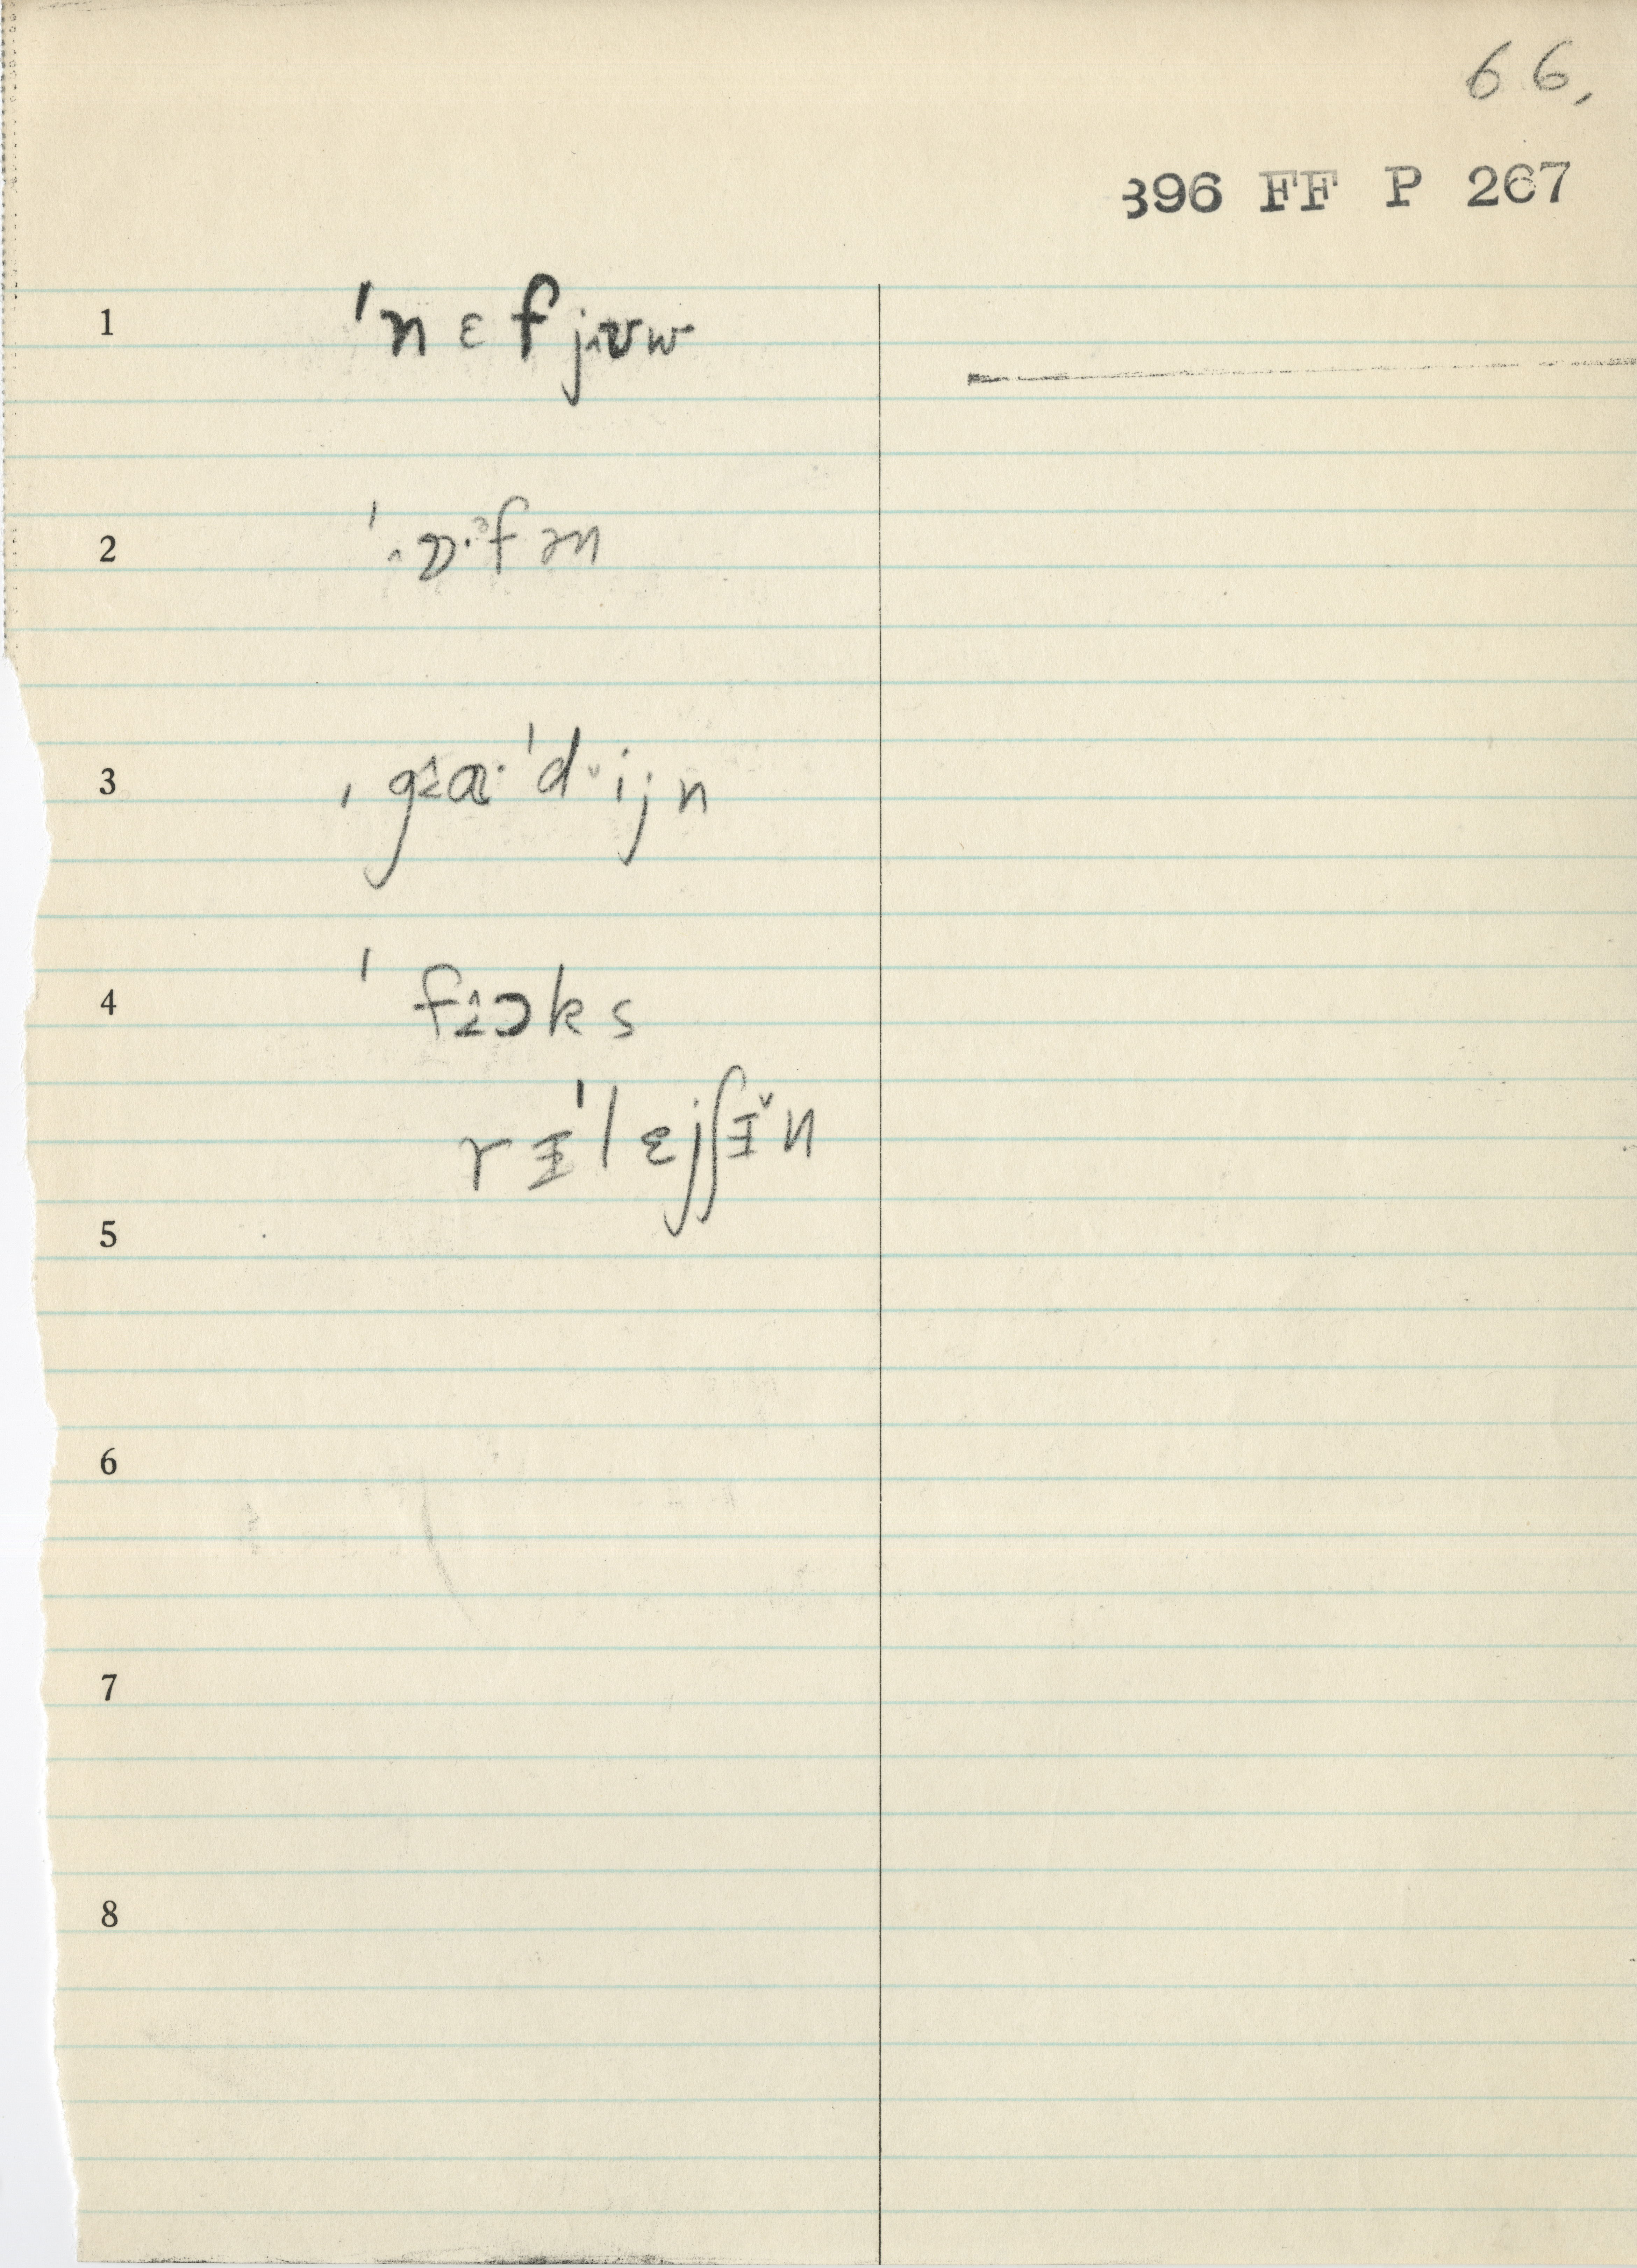 66.
396 FF P 267
1 ˈnɛfjʊw
2 ˈɒ·ᵊfən
3 ˌgɑ·ˈdˇijn
4 ˈfɔks
rɪˈlɛjʃɪ̌n
5
6
7
8